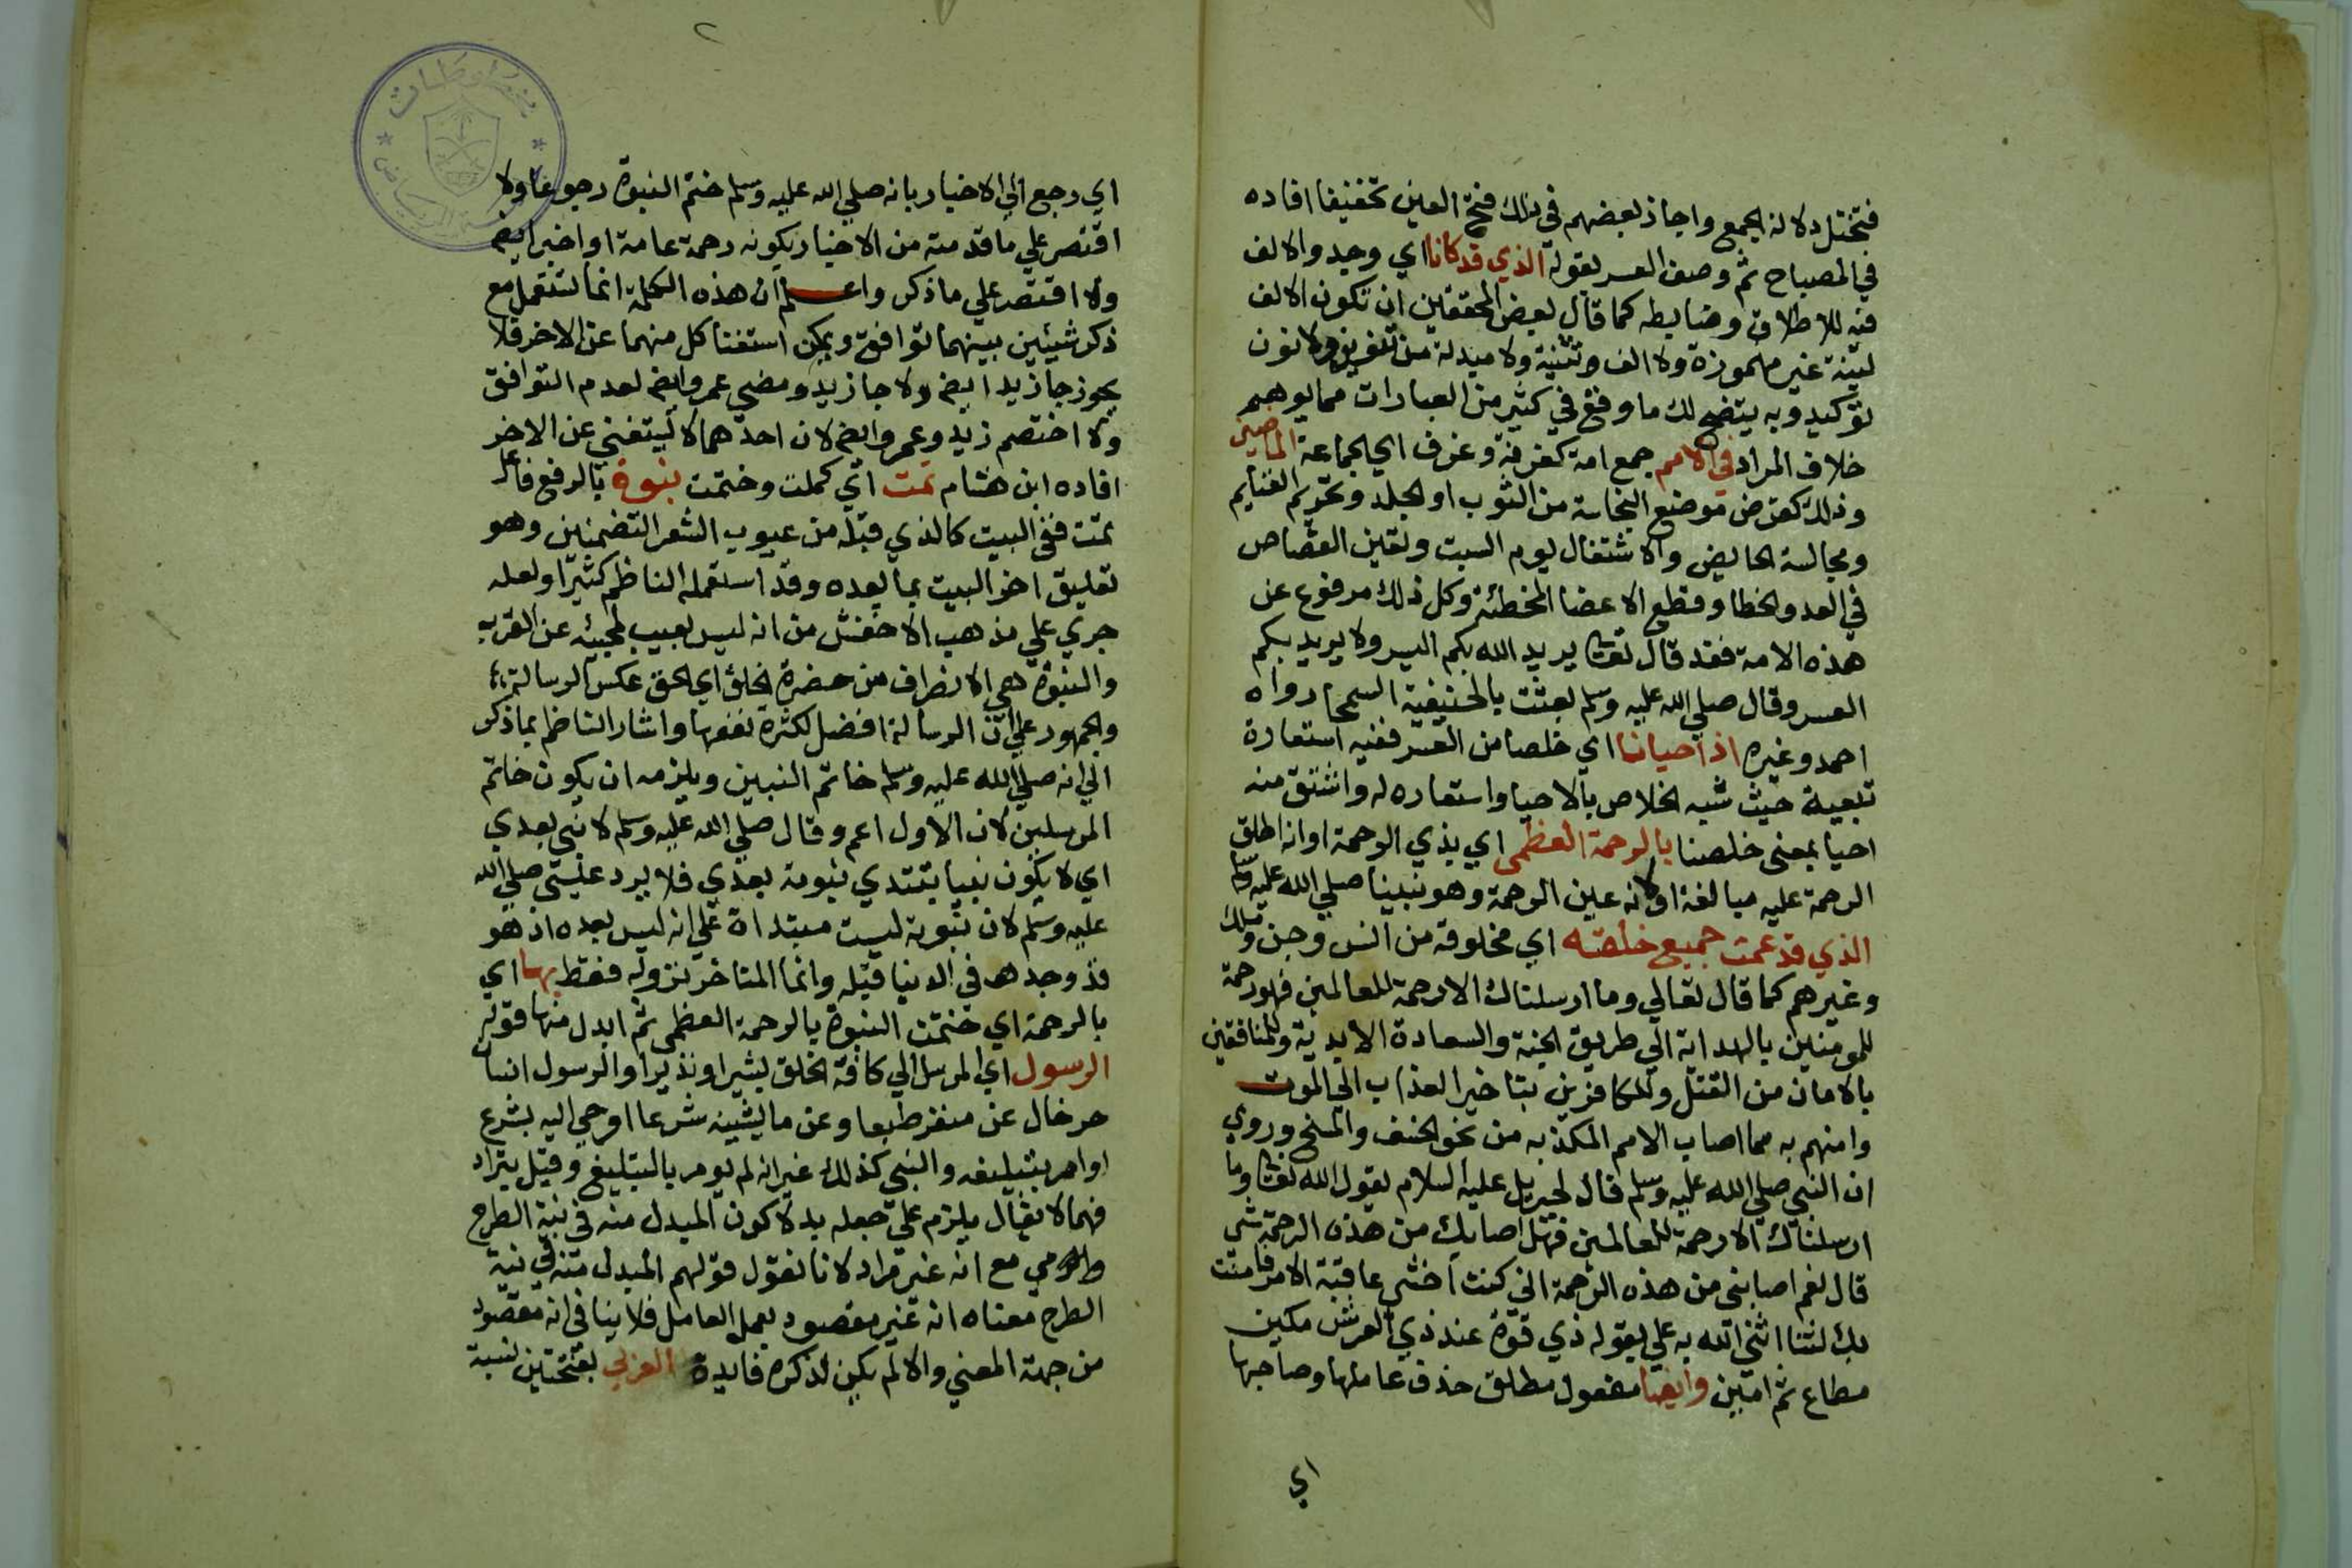 فتختل دلالة الجمع واجاز بعضهم في ذلك فتح العين تخفيفا افاده
في المصباح ثم وصف العسر بقوله الذي قد كانا اي وجد والالف
فيه للاطلاق وضابطه كما قال بعض المحققين ان تكون الالف
لينة غير مهموزة ولا الف تثنية ولا مبدلة من تنوين ولا نون
توكيد وبه يتضح لك ما وقع في كثير من العبارات مما يوهم
خلاف المراد في الامم جمع امة كغرفة وغرف اي الجماعة الماضين
وذلك كقرض موضع النجاسة من الثوب او الجلد وتحريم الغنايم
ومجالسة الحايض والاشتغال يوم السبت وتعين القصاص
في العمد والخطا وقطع الاعضا المخطئة وكل ذلك مرفوع عن
هذه الامة فقد قال تعالى يريد الله بكم اليسر ولا يريد بكم
العسر وقال صلي الله عليه وسلم بعثت بالحنيفية السمحا رواه
احمد وغيره اذ احيانا اي خلصنا من العسر ففيه استعارة
تبعية حيث شبه الخلاص بالاحيا واستعاره له واشتق منه
احيا بمعنى خلصنا بالرحمة العظمى اي بذي الرحمة او انه اطلق
الرحمة عليه مبالغة او لانه عين الرحمة وهو نبينا صلي الله عليه وسلم
الذي قد عمت جميع خلقه اي مخلوقه من انس وجن وملك
وغيرهم كما قال تعالي وما ارسلناك الا رحمة للعالمين فهو رحمة
للمومنين بالهداية الي طريق الجنة والسعادة الابدية وللمنافقين
بالامان من القتل وللكافرين بتاخير العذاب الي الموت
وامنهم به مما اصاب الامم المكذبه من نحو الخسف والمسخ وروي
ان النبي صلي الله عليه وسلم قال لجبريل عليه السلام يقول الله تعالى وما
ارسلناك الا رحمة للعالمين فهل اصابك من هذه الرحمة شي
قال نعم اصابني من هذه الرحمة اني كنت اخشى عاقبة الامر فامنت
بك لثنا اثني الله به علي بقوله ذي قوة عند ذي العرش مكين
مطاع ثم امين وايضا مفعول مطلق حذف عاملها وصاحبها
اي
اي رجع الي الاخبار بانه صلي الله عليه وسلم ختم النبوة رجوعا ولا
اقتصر علي ما قدمته من الاخبار بكونه رحمة عامة او اخبر ايضا
ولا اقتصر علي ما ذكر واعلم ان هذه الكلمة انما تستعمل مع
ذكر شيئين بينهما توافق ويمكن استغنا كل منهما عن الاخر فلا
يجوز جا زيد ايضا ولا جا زيد ومضي عمرو ايضا لعدم التوافق
ولا اختصم زيد وعمرو ايضا لان احدهما لا يستغني عن الاخر
افاده ابن هشام تمت اي كملت وختمت بنوة بالرفع فاعل
تمت ففي البيت كالذي قبله من عيوب الشعر التضمين وهو
تعليق اخر البيت بما بعده وقد استعمله الناظم كثيرا ولعله
جري علي مذهب الاخفش من انه ليس بعيب لمجيئه عن العرب
والنبوة هي الانصراف من حضرة الخلق اي الحق عكس الرسالة
والجمهور علي ان الرسالة افضل لكثرة نفعها واشار الناظم بما ذكر
الي انه صلي الله عليه وسلم خاتم النبين ويلزمه ان يكون خاتم
المرسلين لان الاول اعم وقال صلي الله عليه وسلم لا نبي بعدي
اي لا يكون نبيا يبتدي بنبوته بعدي فلا يرد عيسى صلي الله
عليه وسلم لان نبوته ليست مبتداة علي انه ليس بعده اذ هو
قد وجد في الدنيا قبله وانما المتاخر نزوله فقط بها اي
بالرحمة اي ختمت النبوة بالرحمة العظمى ثم ابدل منها قوله
الرسول اي المرسل الي كافة الخلق بشيرا ونذيرا والرسول انسان
حر خال عن منفر طبعا وعن ما يشينه شرعا اوحي اليه بشرع
اوامر بتبليغه والنبي كذلك غير انه لم يومر بالتبليغ وقيل يتراد
فهما لا يقال يلزم علي جعله بدلا كون المبدل منه في نية الطرح
والرمي مع انه غير مراد لانا نقول قولهم المبدل منه في نية
الطرح معناه انه غير مقصود بعمل العامل فلا ينافي انه مقصود
من جهة المعني والا لم يكن لذكره فايدة العربي بفتحتين نسبة